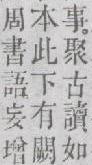 事。聚古讀如
本此下有闕
周書語妄增